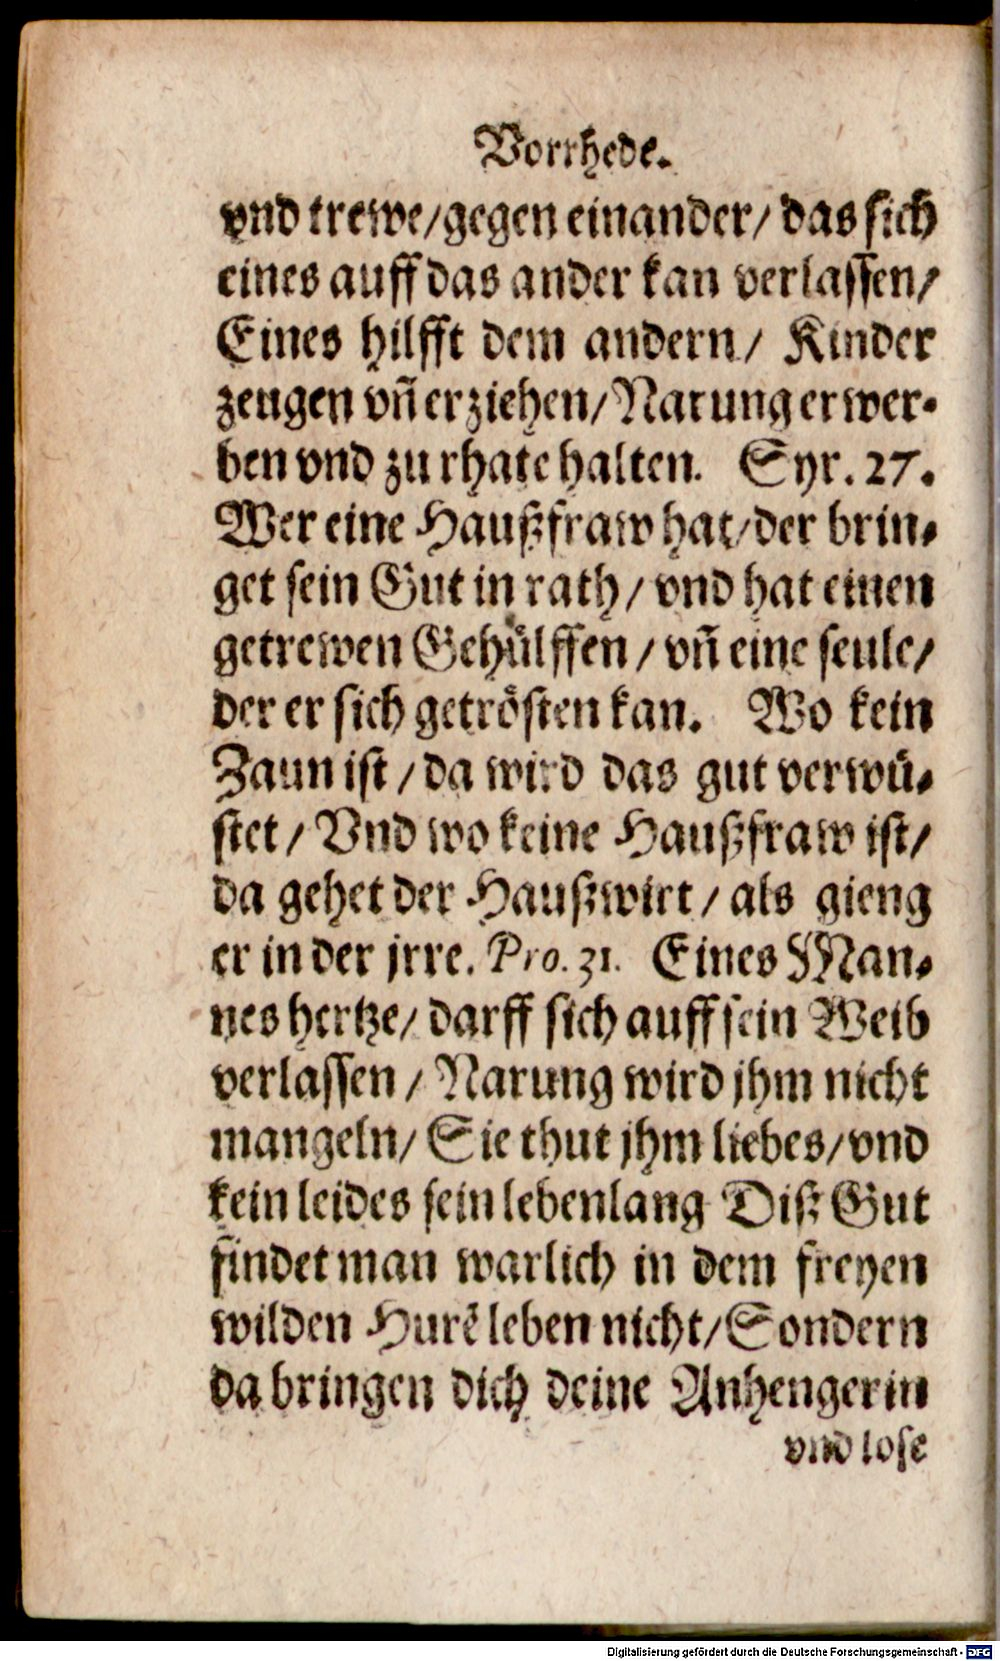 Vorrhede.
vnd trewe/gegen einander/ das sich
eines auff das ander kan verlassen/
Eines hilfft dem andern/ Kinder
zeugen vn̄ erziehen/Narung erwer-
ben vnd zu rhate halten. Syr. 27.
Wer eine Haußfraw hat/der brin-
get sein Gut in rath/ vnd hat einen
getrewen Gehülffen/ vn̄ eine seule/
der er sich getrösten kan. Wo kein
Zaun ist/ da wird das gut verwü-
stet/ Vnd wo keine Haußfraw ist/
da gehet der Haußwirt/ als gieng
er in der jrre. Pro. 31. Eines Man-
nes hertze/ darff sich auff sein Weib
verlassen/ Narung wird jhm nicht
mangeln/ Sie thut jhm liebes/vnd
kein leides sein lebenlang Diß Gut
findet man warlich in dem freyen
wilden Hurē leben nicht/Sondern
da bringen dich deine Anhengerin
vnd lose
Digitalisierung gefördert durch die Deutsche Forschungsgemeinschaft - DFG